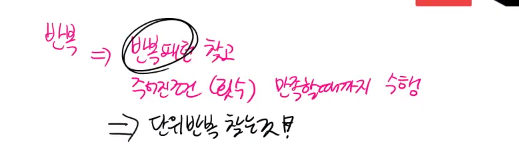 반복
⇒ 반복패턴 찾고
주어진조건 (횟수) 만족할때까지 수행
⇒ 단위반복 찾는것!